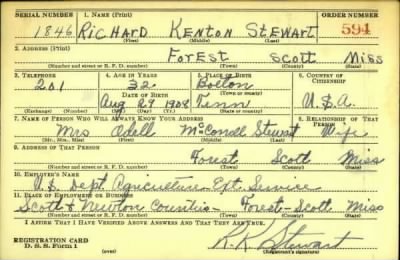 SERIAL NUMBER 1. NAME (Print) ORDER NUMBER
1846 RICHARD KENTON STEWART 594
(First) (Middle) (Last)
2. ADDRESS (Print)
FOREST SCOTT MISS
(Number and street or R. F. D. number) (Town) (County) (State)
3. TELEPHONE 4. AGE IN YEARS 5. PLACE OF BIRTH 6. COUNTRY OF CITIZENSHIP
201 32 Bolton
DATE OF BIRTH (Town or county)
Aug 29 1908 Tenn U.S.A.
(Exchange) (Number) (Mo.) (Day) (Yr.) (State or country)
7. NAME OF PERSON WHO WILL ALWAYS KNOW YOUR ADDRESS 8. RELATIONSHIP OF THAT PERSON
Mrs Odell McConnell Stewart Wife
(Mr., Mrs., Miss) (First) (Middle) (Last)
9. ADDRESS OF THAT PERSON
Forest Scott Miss
(Number and street or R. F. D. number) (Town) (County) (State)
10. EMPLOYER'S NAME
U.S. Dept. Agriculture - Ext. Service
11. PLACE OF EMPLOYMENT OR BUSINESS
Scott & Newton Counties - Forest - Scott Miss
(Number and street or R. F. D. number) (Town) (County) (State)
I AFFIRM THAT I HAVE VERIFIED ABOVE ANSWERS AND THAT THEY ARE TRUE.
REGISTRATION CARD
D. S. S. Form 1
R. K. Stewart
(Registrant's signature)